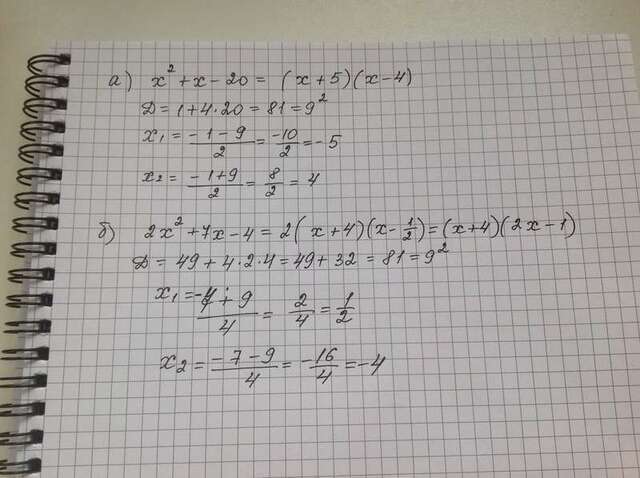 а) x² + x − 20 = (x + 5)(x − 4)
Д = 1 + 4 · 20 = 81 = 9²
x₁ = (−1 − 9)/2 = −10/2 = −5
x₂ = (−1 + 9)/2 = 8/2 = 4
б) 2x² + 7x − 4 = 2(x + 4)(x − 1/2) = (x + 4)(2x − 1)
Д = 49 + 4 · 2 · 4 = 49 + 32 = 81 = 9²
x₁ = (−7 + 9)/4 = 2/4 = 1/2
x₂ = (−7 − 9)/4 = −16/4 = −4